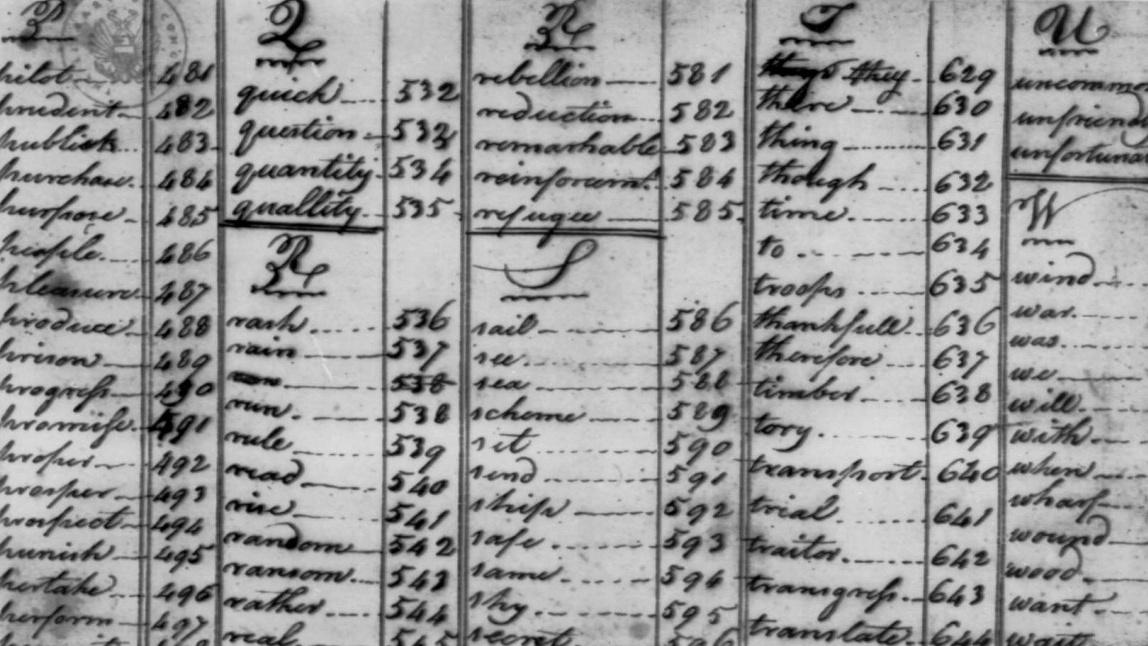 P
pilot 481
prudent 482
publick 483
purchase 484
purpose 485
people 486
pleasure 487
produce 488
prison 489
progress 490
promise 491
proper 492
prosper 493
prospect 494
punish 495
pertake 496
perform 497
Q
quick 532
question 533
quantity 534
quallity 535
R
rash 536
rain 537
538
run 538
rule 539
read 540
rise 541
random 542
ransom 543
rather 544
real 545
R
rebellion 581
reduction 582
remarkable 583
reinforcemt. 584
refugee 585
S
sail 586
see 587
sea 588
scheme 589
set 590
send 591
ship 592
safe 593
same 594
shy 595
secret 596
T
they 629
there 630
thing 631
though 632
time 633
to 634
troops 635
thankfull 636
therefore 637
timber 638
tory 639
transport 640
trial 641
traitor 642
transgress 643
translate 644
U
uncommo
unfriend
unfortuna
W
wind
war
was
we
will
with
when
wharf
wound
wood
want
wait